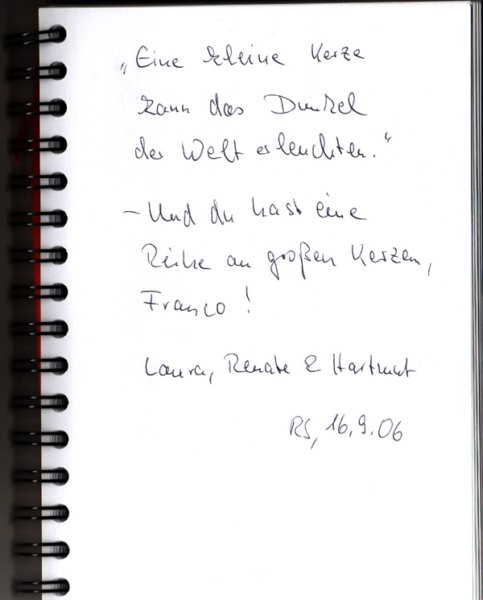 „Eine kleine Kerze
kann das Dunkel
der Welt erleuchten.“
– Und du hast eine
Reihe an großen Kerzen,
Franco!
Laura, Renate & Hartmut
RS, 16.9.06